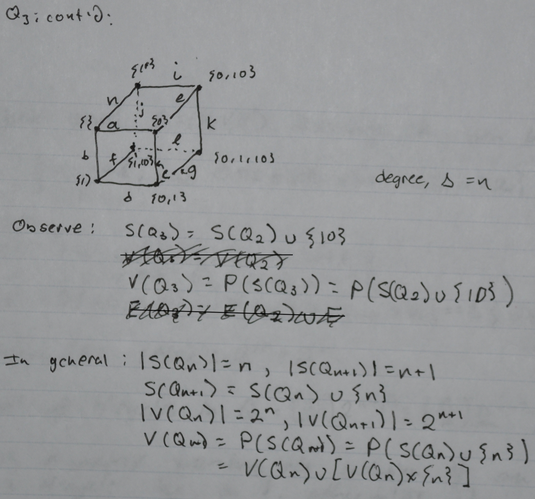 Q3; cont'd:
{10}
i
{0,10}
n
j
e
{}
a
{0}
k
b
f
l
{1,10}
{0,1,10}
{1}
g
d
{0,1}
degree, Δ = n
Observe: S(Q3) = S(Q2) ∪ {10}
V(Q3) = V(Q2)
V(Q3) = P(S(Q3)) = P(S(Q2) ∪ {10})
E(Q3) = E(Q2) ∪ E
In general: |S(Qn)| = n, |S(Qn+1)| = n+1
S(Qn+1) = S(Qn) ∪ {n}
|V(Qn)| = 2^n, |V(Qn+1)| = 2^n+1
= P(S(Qn) ∪ {n})
= V(Qn) ∪ [V(Qn) × {n}]